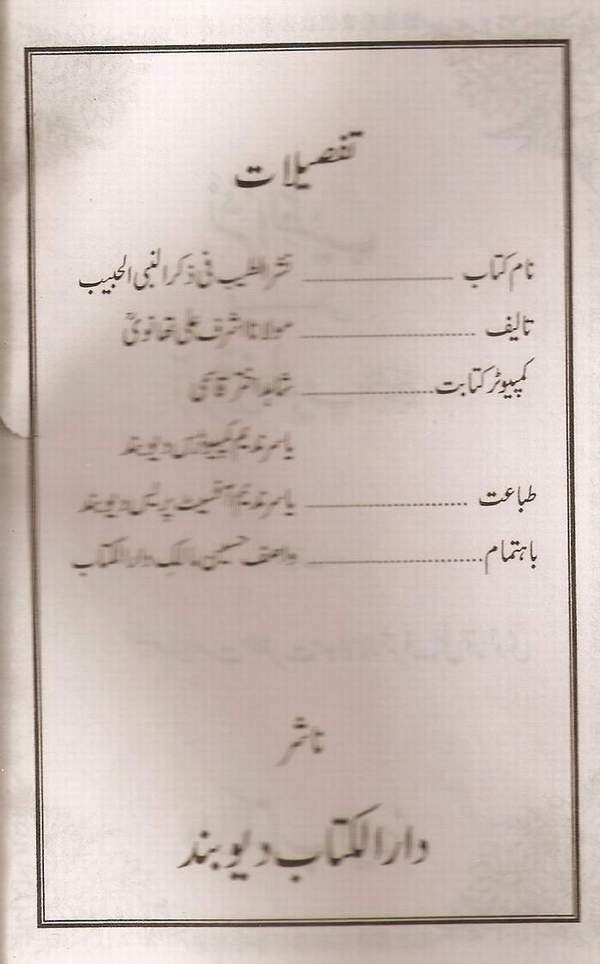 تفصیلات
نام کتاب ـــــــــــ نشر الطیب فی ذکر النبی الحبیب
تالیف ـــــــــــ مولانا اشرف علی تھانویؒ
کمپیوٹر کتابت ـــــــــــ شاہد اختر قاسمی
یاسر ندیم کمپیوٹرس دیوبند
طباعت ـــــــــــ یاسر ندیم آفسیٹ پریس دیوبند
باہتمام ـــــــــــ واصف حسین مالک دارالکتاب
ناشر
دارالکتاب دیوبند